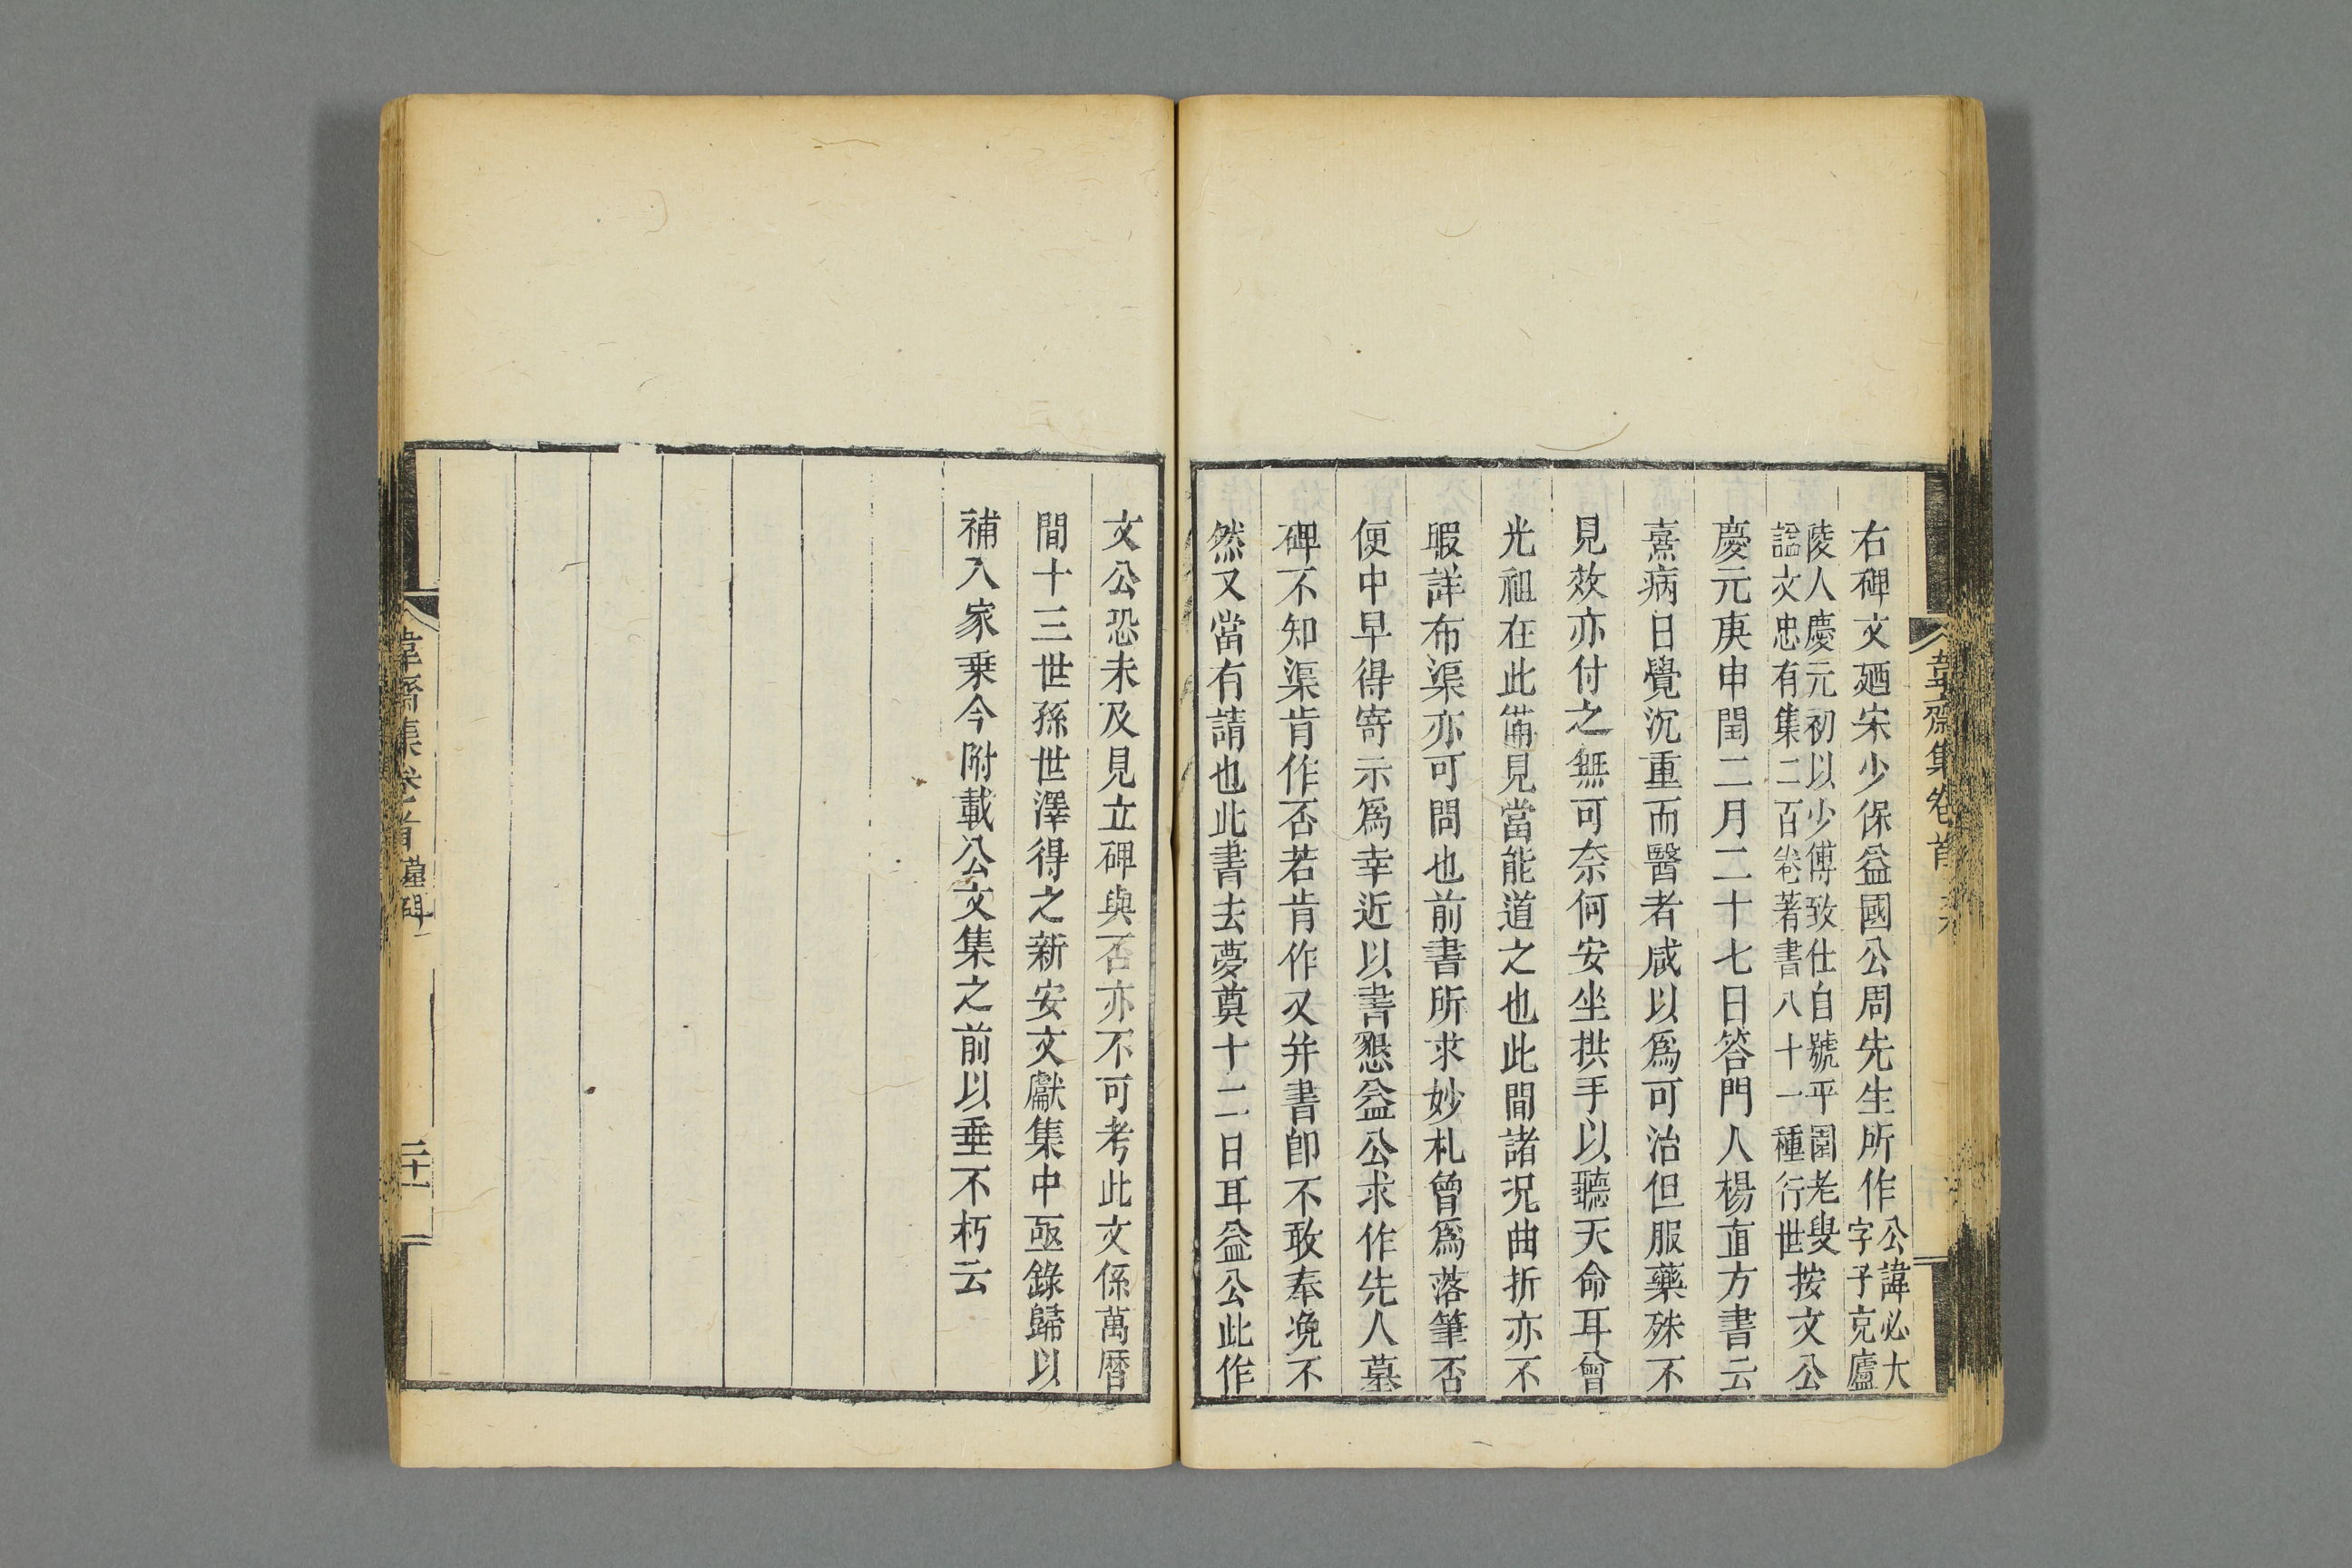 韋齋集卷首
右碑文廼宋少保益國公周先生所作公諱必大字子充廬
陵人慶元初以少傅致仕自號平園老叟諡文忠有集二百卷著書八十一種行世按文公
慶元庚申閏二月二十七日答門人楊直方書云
熹病日覺沉重而醫者咸以爲可治但服藥殊不
見效亦付之無可奈何安坐拱手以聽天命耳曾
光祖在此備見當能道之也此間諸况曲折亦不
暇詳布渠亦可問也前書所求妙札曾爲落筆否
便中早得寄示爲幸近以書懇益公求作先人墓
碑不知渠肯作否若肯作又并書卽不敢奉浼不
然又當有請也此書去夢奠十二日耳益公此作
文公恐未及見立碑與否亦不可考此文係萬曆
間十三世孫世澤得之新安文獻集中亟錄歸以
補入家乗今附載公文集之前以垂不朽云
韋齋集卷之首 墓碑 二十一